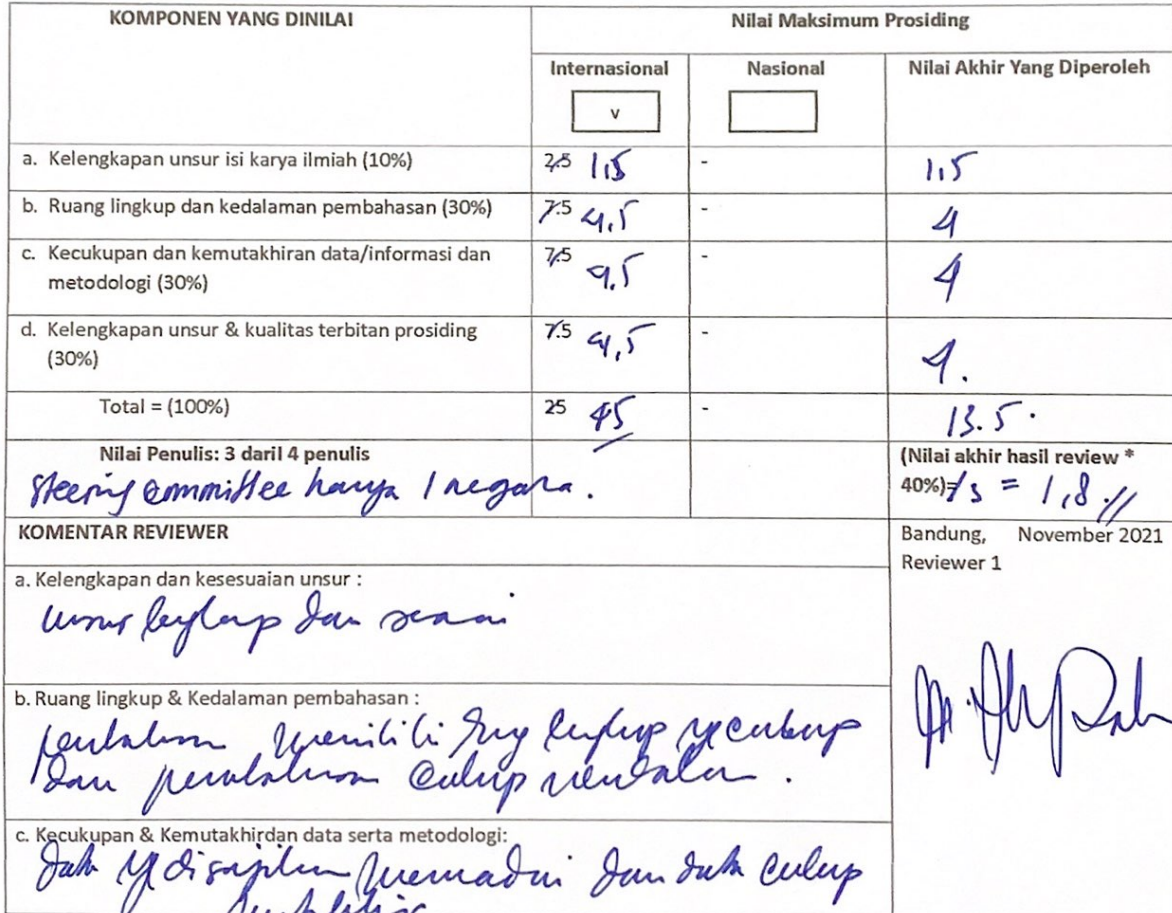 KOMPONEN YANG DINILAI
Nilai Maksimum Prosiding
Internasional
Nasional
Nilai Akhir Yang Diperoleh
v
a. Kelengkapan unsur isi karya ilmiah (10%)
2.5 1,5 - 1,5
b. Ruang lingkup dan kedalaman pembahasan (30%)
7.5 4,5 - 4
c. Kecukupan dan kemutakhiran data/informasi dan
metodologi (30%)
7.5 4,5 - 4
d. Kelengkapan unsur & kualitas terbitan prosiding
(30%)
7.5 4,5 - 4.
Total = (100%)
25 - 13.5.
Nilai Penulis: 3 daril 4 penulis
Steering committee hanya 1 negara.
(Nilai akhir hasil review *
40%)=/3 = 1,8 //
KOMENTAR REVIEWER
Bandung, November 2021
Reviewer 1
a. Kelengkapan dan kesesuaian unsur :
unsur lengkap dan sesuai
b. Ruang lingkup & Kedalaman pembahasan :
memiliki lingkup cukup
dan cukup
c. Kecukupan & Kemutakhirdan data serta metodologi:
Data disajikan memadai dan data cukup